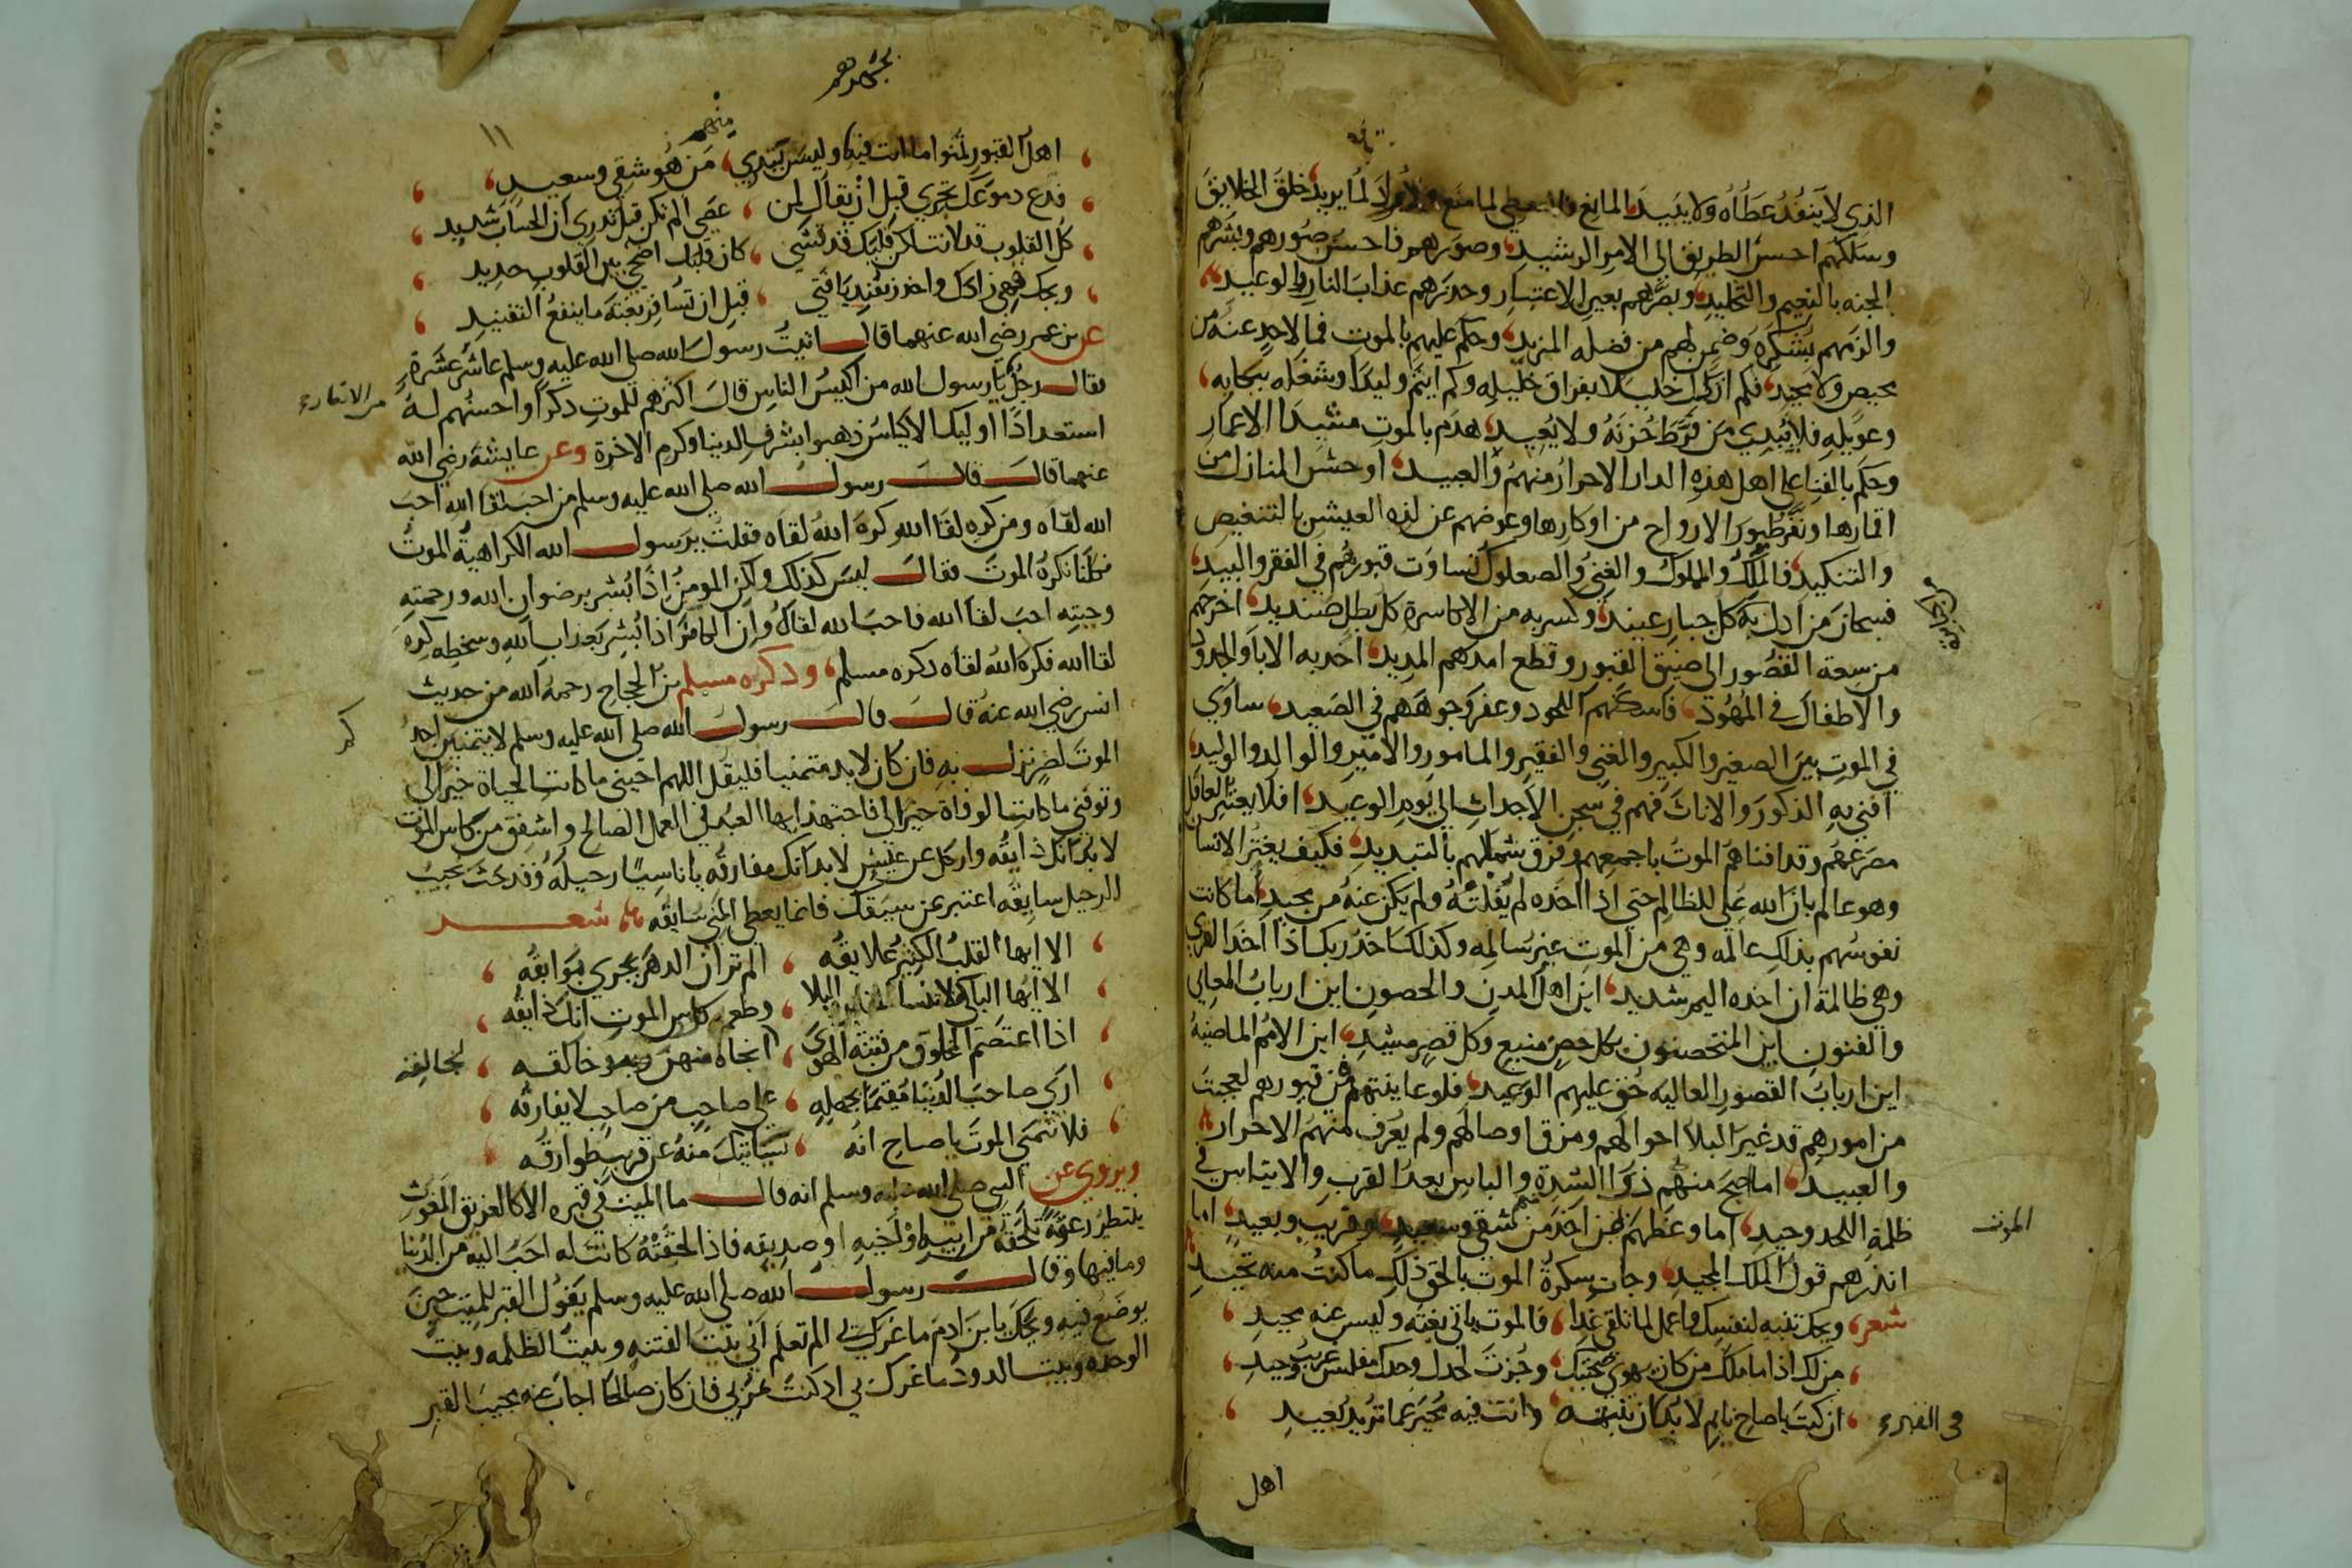 الذي لا ينفد عطاؤه ولا يبيد المانع فلا معطي لما منع ولا راد لما يريد خلق الخلايق
وسلكهم احسن الطريق الى الامر الرشيد وصورهم فاحسن صورهم وبشرهم
الجنه بالنعيم والتخليد وبصرهم بعين الاعتبار وحذرهم عذاب النار والوعيد
والزمهم بشكره وضمن لهم من فضله المزيد وحكم عليهم بالموت فما لاحد عنه من
محيص ولا محيد فكم ابكى خليلا بفراق خليله وكم ايتم وليدا وشغله ببكايه
وعويله فلا يبدي من فرط حزنه ولا يعيد هدم بالموت مشيد الاعمار
وحكم بالفنا على اهل هذه الدار الاحرار منهم والعبيد اوحش المنازل من
اقمارها ونفر طيور الارواح من اوكارها وعوضهم عن لذه العيش بالتنغيص
والتنكيد فالملك والمملوك والغني والصعلوك تساوت قبورهم في القفر والبيد
فسبحان من اذل به كل جبار عنيد وكسر به من الاكاسرة كل بطل صنديد اخرجهم
من سعة القصور الى ضيق القبور وقطع امدهم المديد اخذ به الابا والجدود
والاطفال في المهود فاسكنهم اللحود وعفر وجوههم في الصعيد ساوى
في الموت بين الصغير والكبير والغني والفقير والمامور والامير والوالد والوليد
افنى به الذكور والاناث فهم في سجن الاجداث الى يوم الوعيد افلا يعتبر العاقل
مصرعهم وقد افناهم الموت باجمعهم وفرق شملهم بالتبديد فكيف يغتر الانسان
وهو عالم بان الله يملي للظالم حتى اذا اخذه لم يفلته ولم يكن عنه من محيد اما كانت
نفوسهم بذلك عالمه وهي من الموت غير سالمه وكذلك اخذ ربك اذا اخذ القرى
وهي ظالمة ان اخذه اليم شديد اين اهل المدن والحصون اين ارباب المعاني
والفنون اين المتحصنون بكل حصن منيع وكل قصر مشيد اين الامم الماضيه
اين ارباب القصور العاليه حق عليهم الوعيد فلو عاينتهم في قبورهم لعجبت
من امورهم قد غير البلا احوالهم ومزق اوصالهم ولم يعرف منهم الاحرار
والعبيد اما اصبح منهم ذوا الشدة والباس بعد القرب والايناس في
ظلمة اللحد وحيد اما وعظهم من اخذ من شقي وسعيد وقريب وبعيد اما
الموت
انذرهم قول الملك المجيد وجات سكرة الموت بالحق ذلك ما كنت منه تحيد
شعر ويحك تنبه لنفسك واعمل لما تلقى غدا فالموت ياتي بغته وليس عنه محيد
من لك اذا ما ملك من كان يهوى صحبتك وجزت لحدك وحدك مفلس غريب وحيد
ان كنت يا صاح نايم لا بد ان تنتبه وانت فيه محير عما تريد بعيد
في القبر
اهل
١١
منهم
اهل القبور تمنوا ما انت فيه وليس يبتدي من هو شقي وسعيد
فدع دموعك تجري قبل ان يقال لمن عصى الم تكن قبل تدري ان الحساب شديد
كل القلوب قد لانت لكن قلبك قد قسي كان قلبك اضحى بين القلوب حديد
ويحك فهي زادك واحذر تفند يا فتى قبل ان تسافر بغتة ما ينفع التفنيد
عن بن عمر رضي الله عنهما قال اتيت رسول الله صلى الله عليه وسلم عاشر عشرة
من الانصار
فقال رجل يا رسول الله من اكيس الناس قال اكثرهم للموت ذكرا واحسنهم له
استعدادا اوليك الاكياس ذهبوا بشرف الدنيا وكرم الاخرة وعن عايشة رضي الله
عنهما قالت قال رسول الله صلى الله عليه وسلم من احب لقا الله احب
الله لقاه ومن كره لقا الله كره الله لقاه فقلت يرسول الله الكراهية الموت
فكلنا نكره الموت فقال ليس كذلك ولكن المومن اذا بشر برضوان الله ورحمته
وجنته احب لقا الله فاحب الله لقاه وان الكافر اذا بشر بعذاب الله وسخطه كره
لقا الله فكره الله لقاه ذكره مسلم وذكره مسلم بن الحجاج رحمه الله من حديث
انس رضي الله عنه قال قال رسول الله صلى الله عليه وسلم لا يتمنين احدكم
الموت لضر نزل به فان كان لا بد متمنيا فليقل اللهم احيني ما كانت الحياة خيرا لي
وتوفني ما كانت الوفاة خيرا لي فاجتهد ايها العبد في العمل الصالح واشفق من كاس الموت
لا بد انك ذايقه وارحل عن عيش لا بد انك مفارقه يا ناسيا رحيله وقد حثت نجيب
الرحيل سايقه اعتبر بمن سبقك فانما يعطى المنى سابقه شعر
الا ايها القلب الكثير علايقه الم تر ان الدهر يجري بوايقه
الا ايها الباكي لا تنسا البلا وطعم كاس الموت انك ذايقه
اذا اعتصم المخلوق من فتنة الهوى انجاه منهن خالقه
لخالقه
ارى صاحب الدنيا مقيما بجهله على صاحب من صاحب لا يفارقه
فلا تتمنى الموت يا صاح انه سياتيك منه عن قريب طوارقه
ويروى عن النبي صلى الله عليه وسلم انه قال ما الميت في قبره الا كالغريق المغوث
ينتظر دعوة تلحقه من ابيه او اخيه او صديقه فاذا لحقته كانت له احب اليه من الدنيا
وما فيها وقال رسول الله صلى الله عليه وسلم يقول القبر للميت حين
يوضع فيه ويحك يا بن ادم ما غرك بي الم تعلم اني بيت الفتنه وبيت الظلمه وبيت
الوحده وبيت الدود ما غرك بي اذ كنت تمر بي فان كان صالحا اجاب عنه مجيب القبر